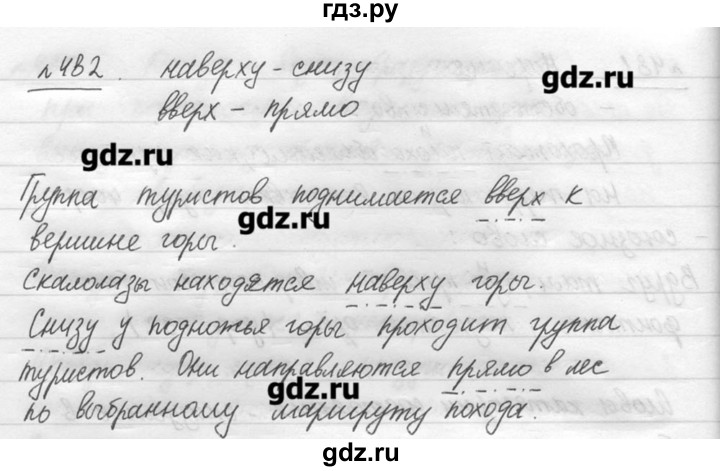 гдз.ру
№482. наверху - снизу
gdz.ru
вверх - прямо
gdz.ru
Группа туристов поднимается вверх к
gdz.ru
вершине горы.
Скалолазы находятся наверху горы.
Снизу у подножья горы проходит группа
туристов. Они направляются прямо в лес
gdz.ru
по выбранному маршруту похода.
gdz.ru